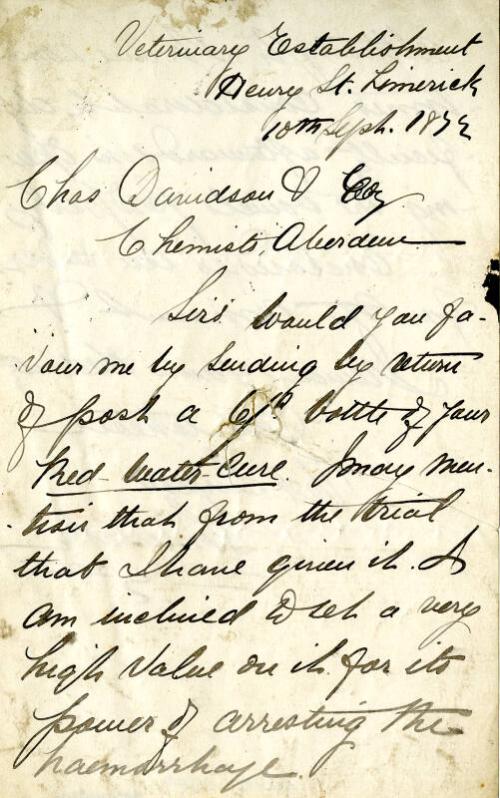 Veterinary Establishment
Henry St. Limerick
10th Sept. 18
Chas Davidson & Coy
Chemists, Aberdeen
Sirs Would you fa-
vour me by sending by return
of post a bottle of your
Red-Water-Cure. I may men-
-tion that from the trial
that I have given it. I
am inclined to set a very
high value on it for its
power of arresting the
haemorrhage.